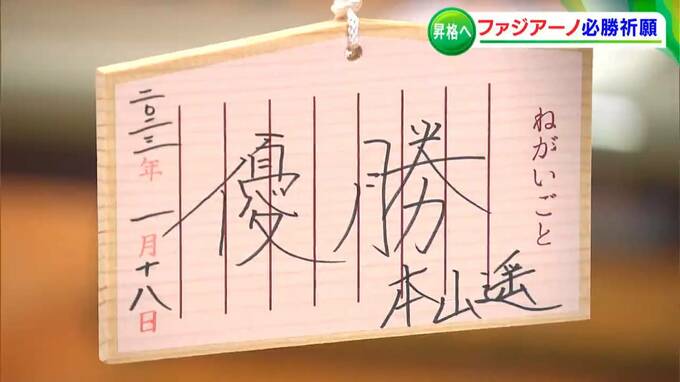 昇格へ
ファジアーノ必勝祈願
ねがいごと
優勝
本山遥
二〇二三年 一月十八日